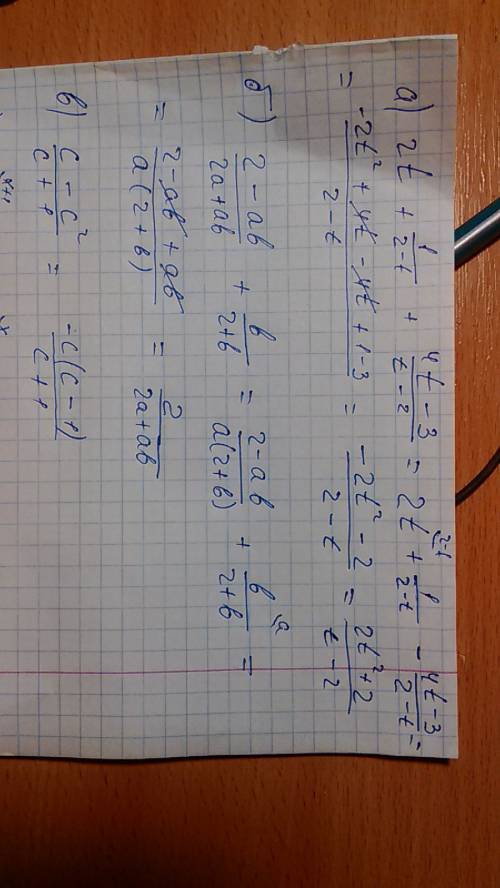 а) 2t + 1/(2-t) + (4t-3)/(t-2) = 2t^(2-t) + 1/(2-t) - (4t-3)/(2-t) =
= (-2t² + 4t - 4t + 1-3)/(2-t) = (-2t² - 2)/(2-t) = (2t² + 2)/(t-2)
б) (2-ab)/(2a+ab) + b/(2+b) = (2-ab)/(a(2+b)) + b^a/(2+b) =
= (2-ab+ab)/(a(2+b)) = 2/(2a+ab)
в) (c - c²)/(c+1) = (-c(c-1))/(c+1)